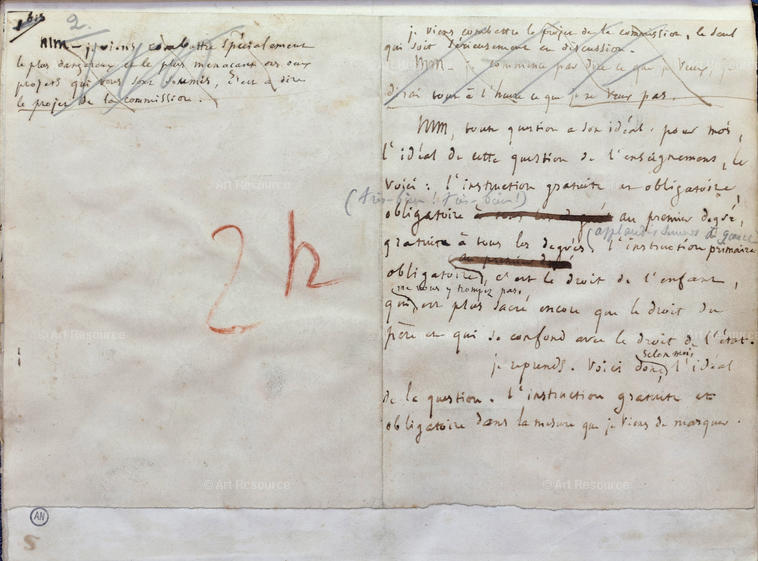 1 bis
2.
MM – je viens combattre spécialement
le plus dangereux et le plus menaçant des deux
projets qui vous sont soumis, c'est à dire
le projet de la commission.
2 h
je viens combattre le projet de la commission, le seul
qui soit sérieusement en discussion.
MM – je commence par dire ce que je veux, je
dirai tout à l'heure ce que je ne veux pas.
MM, toute question a son idéal. pour moi,
l'idéal de cette question de l'enseignement, le
voici : l'instruction gratuite et obligatoire,
(très-bien ! très-bien !)
obligatoire au premier degré,
gratuite à tous les degrés, l'instruction primaire
(applaudissements à gauche
obligatoire, c'est le droit de l'enfant,
(ne vous y trompez pas,
qui, est plus sacré encore que le droit du
père et qui se confond avec le droit de l'état.
je reprends. voici donc, l'idéal
selon moi
de la question. l'instruction gratuite et
obligatoire dans la mesure que je viens de marquer.
AN
5
© Art Resource
© Art Resource
© Art Resource
© Art Resource
© Art Resource
© Art Resource